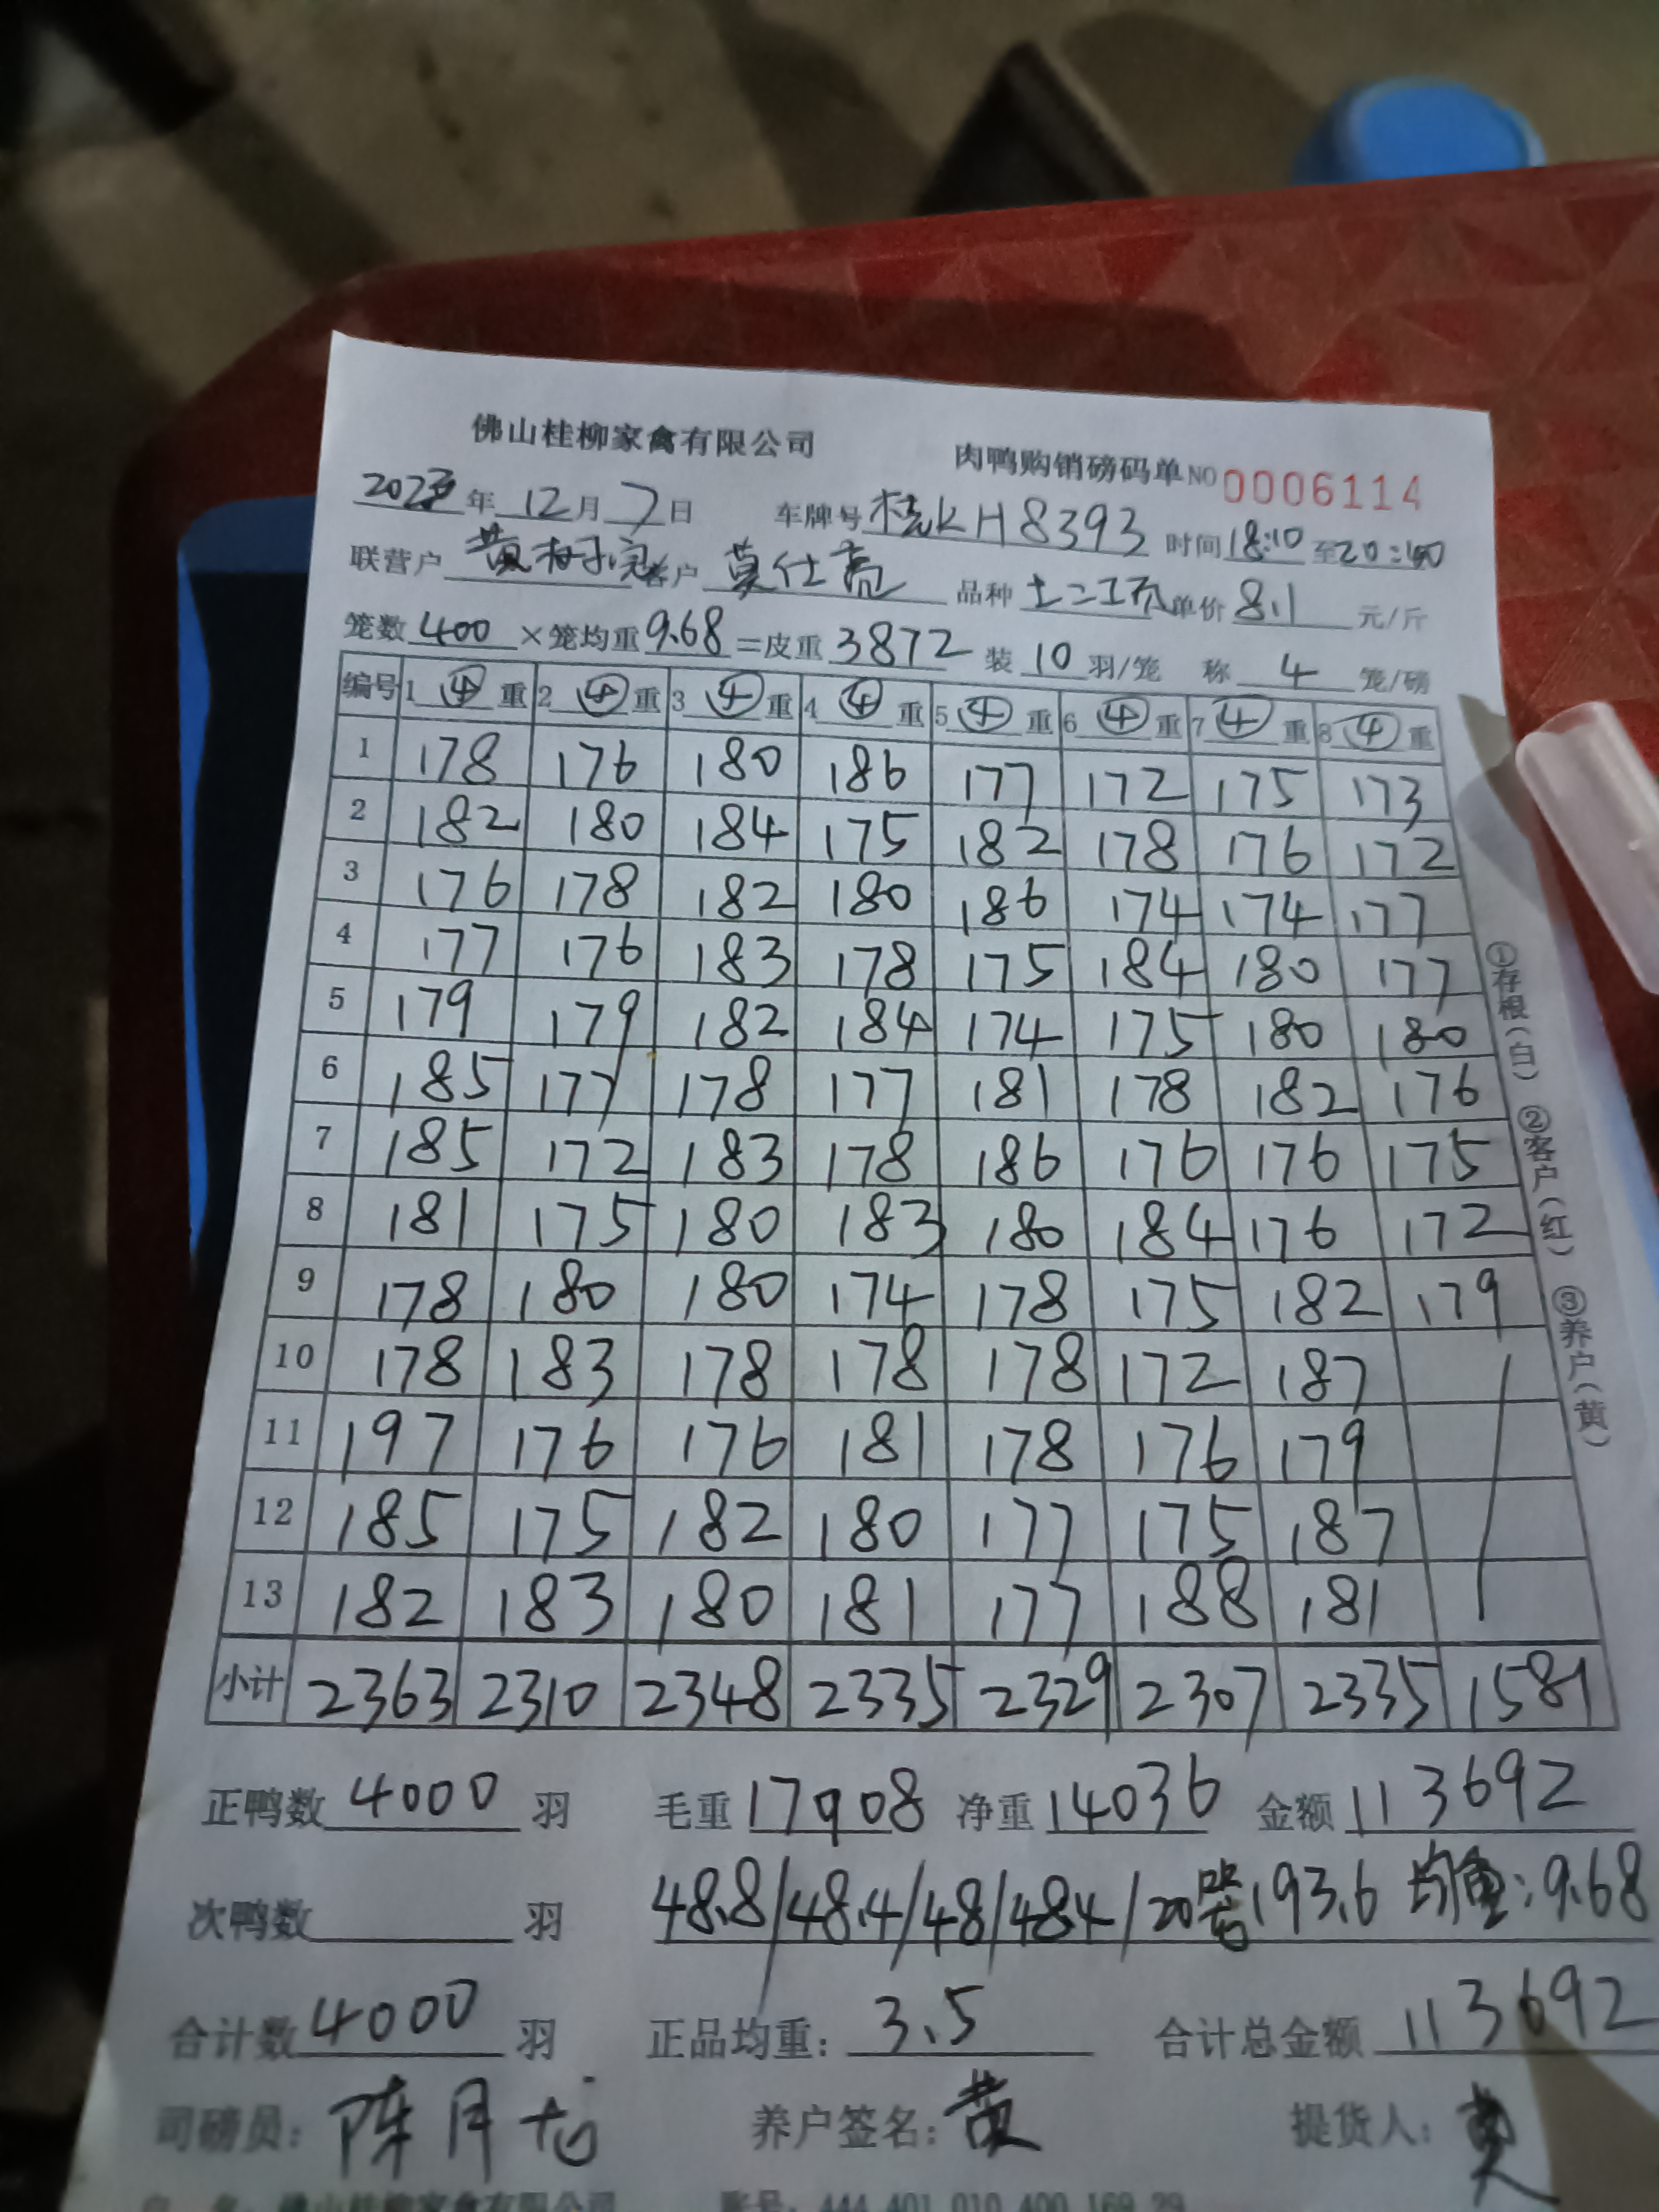 佛山桂柳家禽有限公司 肉鸭购销磅码单 NO 0006114
2023年12月7日 车牌号 桂KH8393 时间18:10至20:40
联营户 黄 客户 莫仕亮 品种 土二 单价 8.1 元/斤
笼数 400 ×笼均重 9.68 =皮重 3872 装 10 羽/笼 称 4 笼/磅
编号 1 ④ 重 2 ④ 重 3 ④ 重 4 ④ 重 5 ④ 重 6 ④ 重 7 ④ 重 8 ④ 重
1 178 176 180 186 177 172 175 173
2 182 180 184 175 182 178 176 172
3 176 178 182 180 186 174 174 177
4 177 176 183 178 175 184 180 177
5 179 179 182 184 174 175 180 180
6 185 177 178 177 181 178 182 176
7 185 172 183 178 186 176 176 175
8 181 175 180 183 180 184 176 172
9 178 180 180 174 178 175 182 179
10 178 183 178 178 178 172 187
11 197 176 176 181 178 176 179
12 185 175 182 180 177 175 187
13 182 183 180 181 177 188 181
小计 2363 2310 2348 2335 2329 2307 2335 1581
①存根(白) ②客户(红) ③养户(黄)
正鸭数 4000 羽 毛重 17908 净重 14036 金额 113692
次鸭数 羽 48.8/48.4/48/48.4/20 193.6 均重:9.68
合计数 4000 羽 正品均重: 3.5 合计总金额 113692
司磅员: 陈月 养户签名: 黄 提货人: 莫
户 名: 佛山桂柳家禽有限公司 账号: 444 401 010 400 169 29